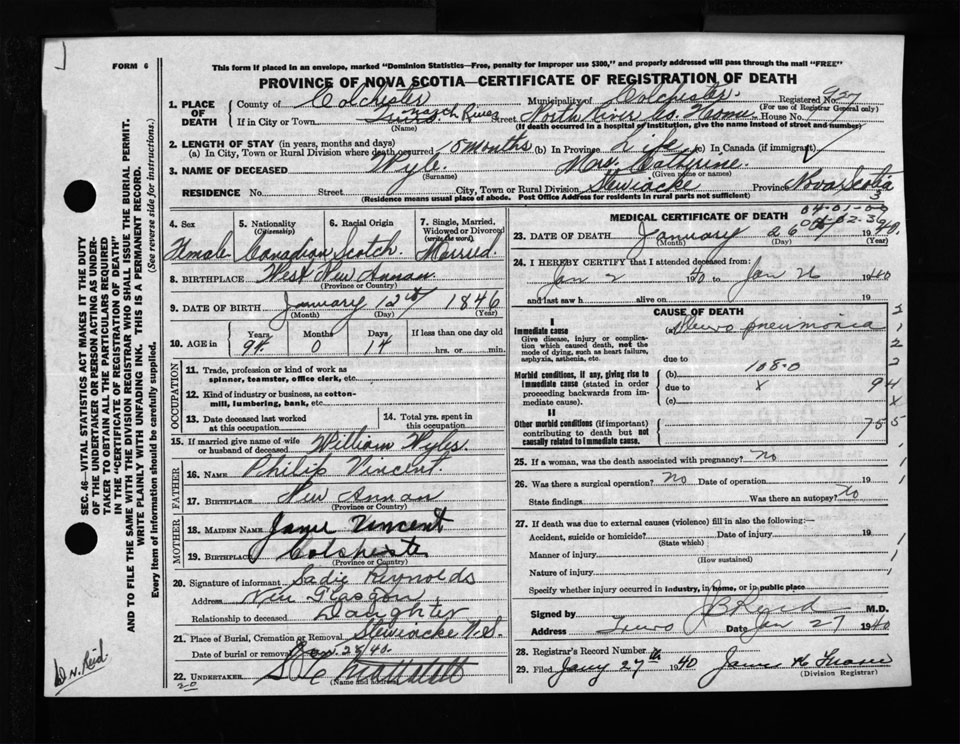 FORM 6
This form if placed in an envelope, marked "Dominion Statistics—Free, penalty for improper use $300," and properly addressed will pass through the mail "FREE"
PROVINCE OF NOVA SCOTIA—CERTIFICATE OF REGISTRATION OF DEATH
1. PLACE OF DEATH
County of Colchester Municipality of Colchester. Registered No. 927
(For use of Registrar General only)
If in City or Town Street North River House No.
(Name) (If death occurred in a hospital of institution, give the name instead of street and number)
2. LENGTH OF STAY (in years, months and days)
(a) In City, Town or Rural Division where death occurred months (b) In Province Life (c) In Canada (if immigrant)
3. NAME OF DECEASED Wyle Mrs. Catherine.
(Surname) (Given name or names)
RESIDENCE No. Street City, Town or Rural Division Stewiacke Province Nova Scotia
(Residence means usual place of abode. Post Office Address for residents in rural parts not sufficient)
4. Sex Female
5. Nationality (Citizenship) Canadian
6. Racial Origin Scotch
7. Single, Married, Widowed or Divorced (write the word) Married.
8. BIRTHPLACE West New Annan.
(Province or Country)
9. DATE OF BIRTH January 12th 1846
(Month) (Day) (Year)
10. AGE in Years 94 Months 0 Days 14 If less than one day old hrs. or min.
OCCUPATION
11. Trade, profession or kind of work as spinner, teamster, office clerk, etc.
12. Kind of industry or business, as cotton-mill, lumbering, bank, etc.
13. Date deceased last worked at this occupation
14. Total yrs. spent in this occupation
15. If married give name of wife or husband of deceased William Wyle
FATHER
16. NAME Philip Vincent.
17. BIRTHPLACE New Annan
(Province or Country)
MOTHER
18. MAIDEN NAME Jane Vincent
19. BIRTHPLACE Colchester
(Province or Country)
20. Signature of informant Sadie Reynolds
Address New Glasgow
Relationship to deceased Daughter
21. Place of Burial, Cremation or Removal Stewiacke N.S.
Date of burial or removal Jan. 28/40.
22. UNDERTAKER
(Name and address)
20
MEDICAL CERTIFICATE OF DEATH
23. DATE OF DEATH January 26 1940.
(Month) (Day) (Year)
24. I HEREBY CERTIFY that I attended deceased from:
Jan 2 40 to Jan 26 1940
and last saw h alive on 19
CAUSE OF DEATH
I
Immediate cause (a) pneumonia
Give disease, injury or complication which caused death, not the mode of dying, such as heart failure, asphyxia, asthenia, etc.
due to
Morbid conditions, if any, giving rise to immediate cause (stated in order proceeding backwards from immediate cause).
(b) 108-0
due to x 94
(c)
II
Other morbid conditions (if important) contributing to death but not causally related to immediate cause.
25. If a woman, was the death associated with pregnancy? No
26. Was there a surgical operation? No Date of operation
State findings Was there an autopsy? No
27. If death was due to external causes (violence) fill in also the following:—
Accident, suicide or homicide? Date of injury 19
(State which)
Manner of injury
(How sustained)
Nature of injury
Specify whether injury occurred in industry, in home, or in public place
Signed by M.D.
Address Truro Date Jan 27 1940
28. Registrar's Record Number
29. Filed Jany 27th 1940
(Division Registrar)
SEC. 46—VITAL STATISTICS ACT MAKES IT THE DUTY OF THE UNDERTAKER OR PERSON ACTING AS UNDERTAKER TO OBTAIN ALL THE PARTICULARS REQUIRED IN THE "CERTIFICATE OF REGISTRATION OF DEATH"
AND TO FILE THE SAME WITH THE DIVISION REGISTRAR WHO SHALL ISSUE THE BURIAL PERMIT.
WRITE PLAINLY WITH UNFADING INK. THIS IS A PERMANENT RECORD.
Every item of information should be carefully supplied. (See reverse side for instructions.)
Reid